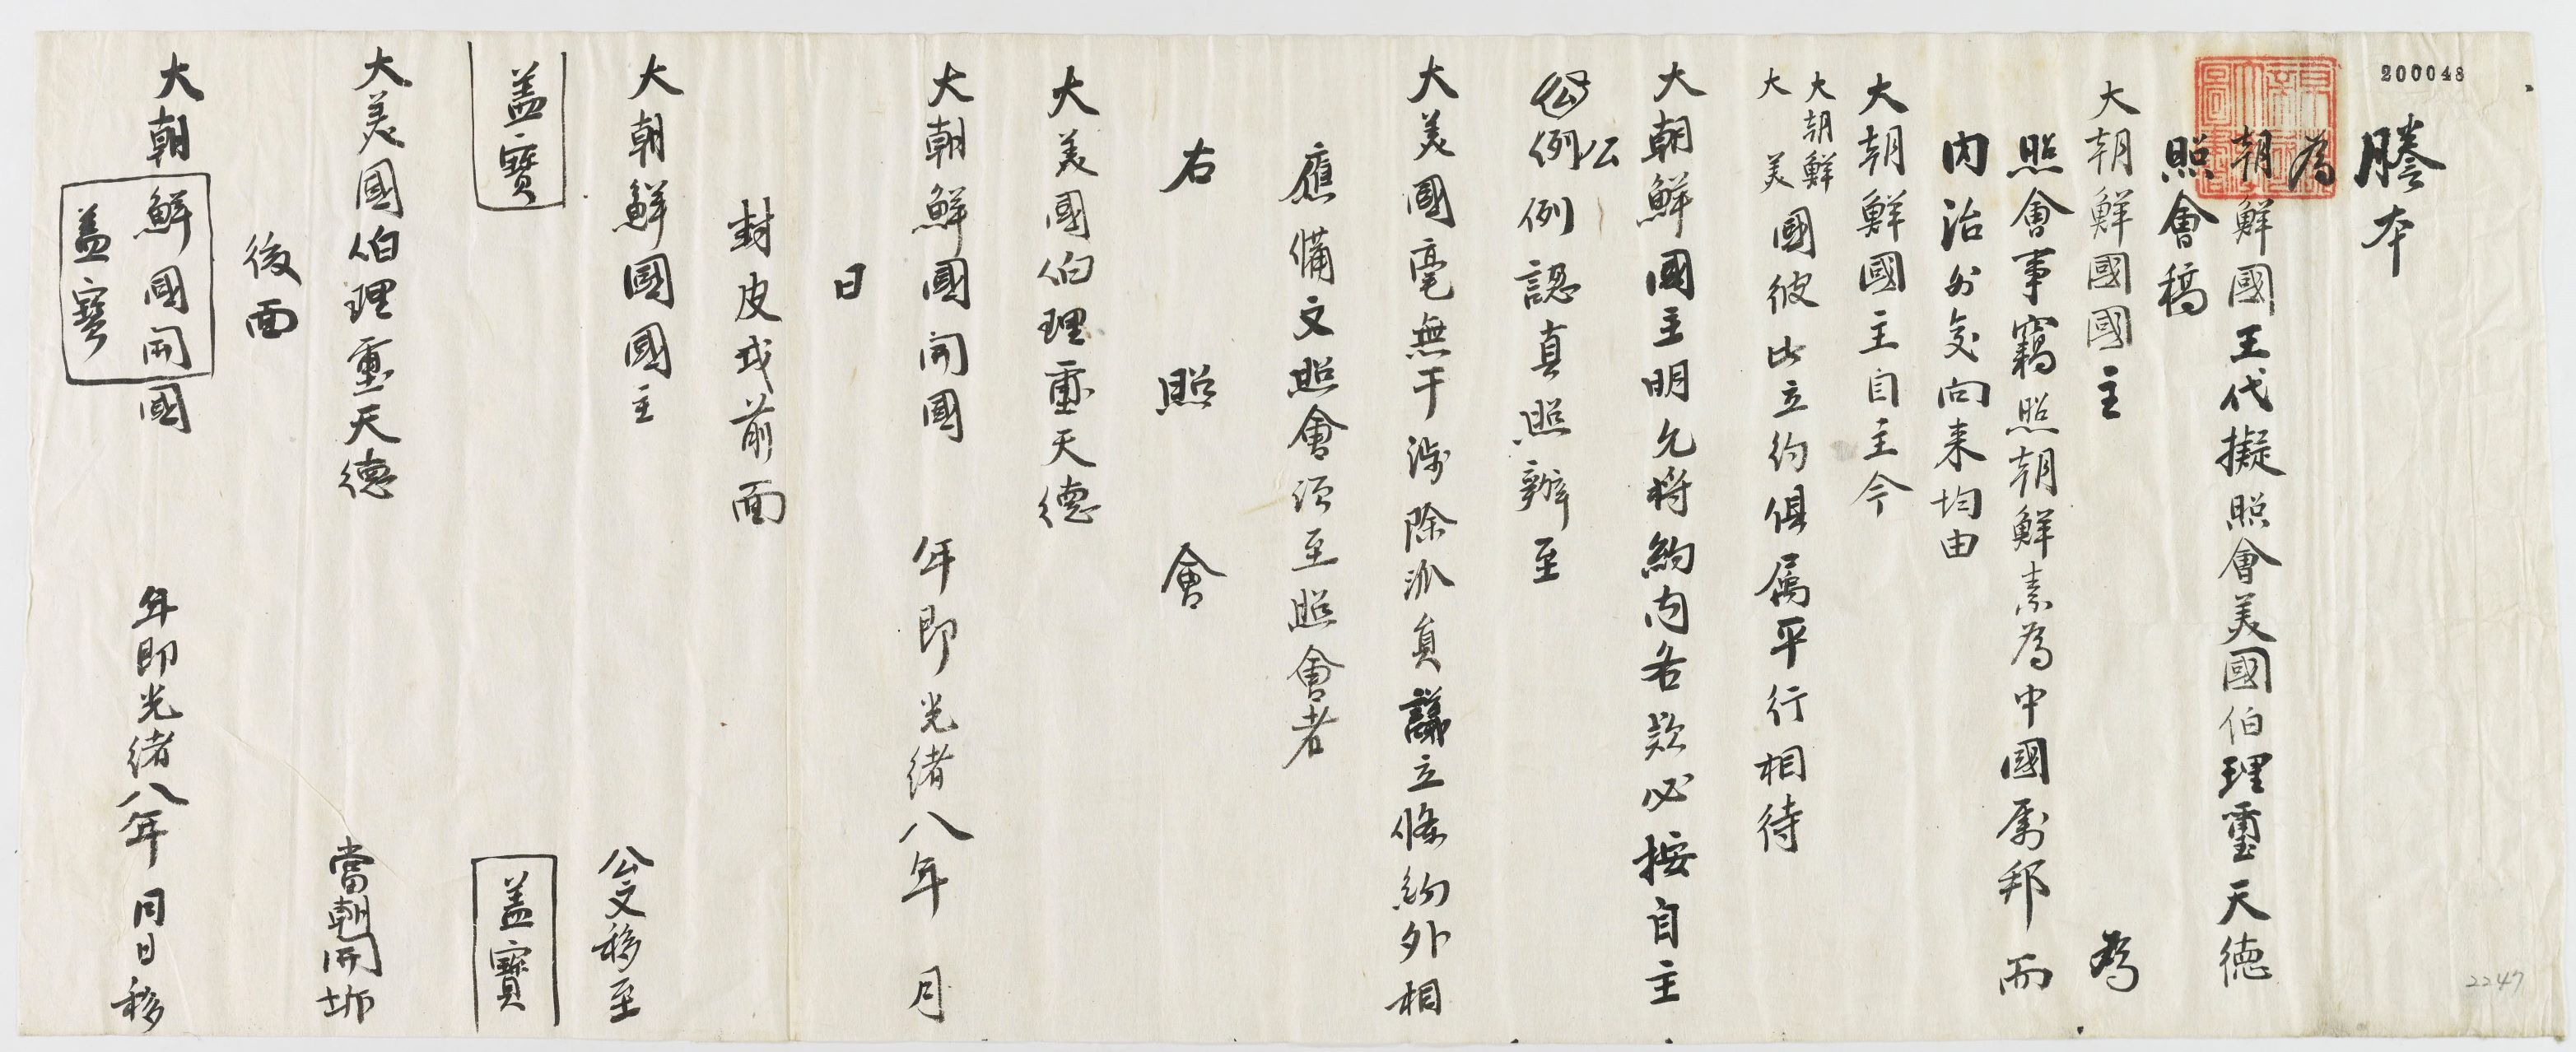 200048
謄本
為
朝鮮國王代擬照會美國伯理璽天德
照會稿
大朝鮮國國主 為
照會事竊照朝鮮素為中國屬邦而
內治外交向来均由
大朝鮮國主自主今
大朝鮮
大美國彼此立約俱属平行相待
大朝鮮國主明允將約內各款必按自主
公
公例例認真照辦至
大美國毫無干涉除派員議立條約外相
應備文照會須至照會者
右照會
大美國伯理璽天德
大朝鮮國開國 年即光緒八年 月
日
封皮或前面
大朝鮮國國主 公文移至
盖寶 盖寶
大美國伯理璽天德 當朝開坼
後面
大朝鮮國開國 年即光緒八年 月 日移
盖寶
2247